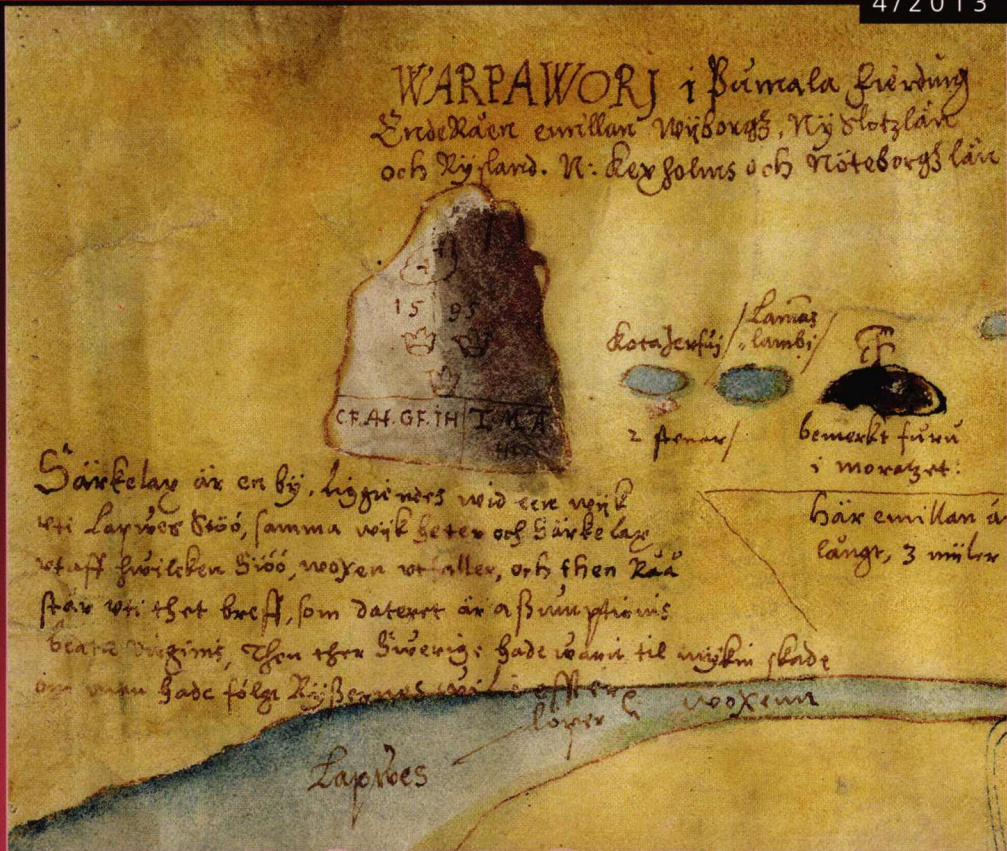 4/2013
WARPAWORJ i Pumala fierdung
EndeRåen emillan Wijborgs, Nyslotzlän
och Ryssland. N: Kexholms och Nöteborgs län
15 95
C.F. AH. G.F. IH T. M. A
Kotajerfui
Lamas
lambi
2 stenar
bemerkt furu
i moratzet:
här emillan ä
långt, 3 miiler
Särkelax är en by, liggiendes wid een wijk
uti Lapwes Siöö, samma wijk heter och Särkelax
utaff hwilcken Siöö, woxen utfaller, och then Råå
står uti thet breff, som dateret är assumptionis
beatæ virginis, Then ther Swerige hade warit til mykin skade
om man hade fölgt Ryssernes
effter
löper
woxenn
Lapwes